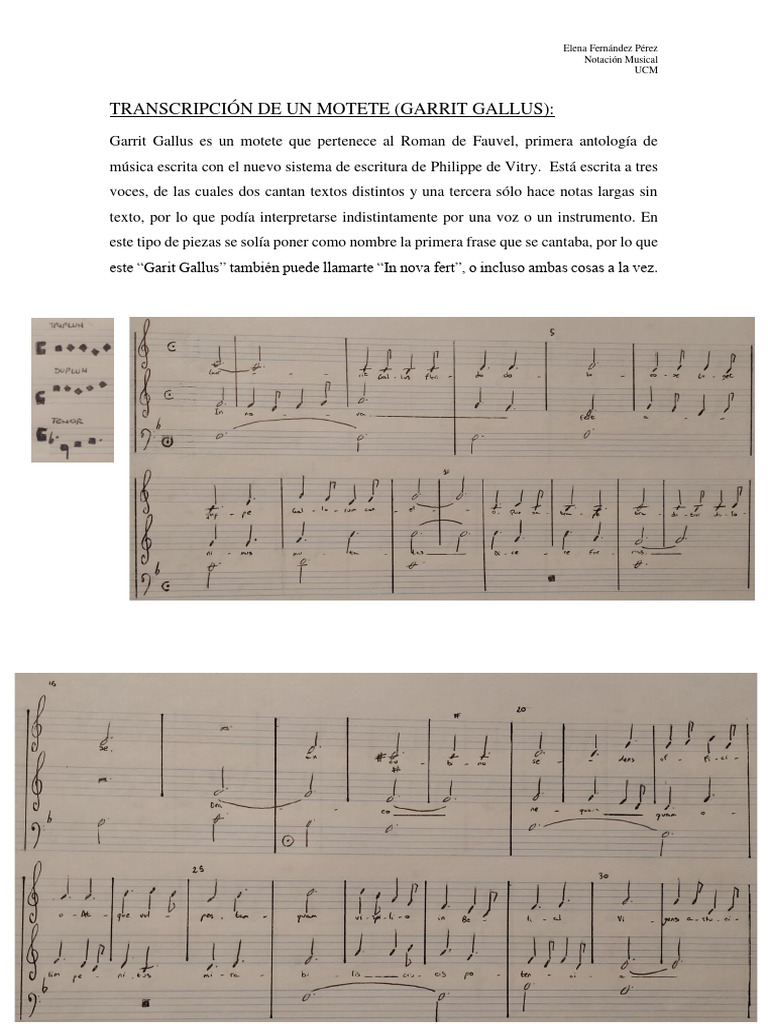 Elena Fernández Pérez
Notación Musical
UCM
TRANSCRIPCIÓN DE UN MOTETE (GARRIT GALLUS):
Garrit Gallus es un motete que pertenece al Roman de Fauvel, primera antología de
música escrita con el nuevo sistema de escritura de Philippe de Vitry. Está escrita a tres
voces, de las cuales dos cantan textos distintos y una tercera sólo hace notas largas sin
texto, por lo que podía interpretarse indistintamente por una voz o un instrumento. En
este tipo de piezas se solía poner como nombre la primera frase que se cantaba, por lo que
este “Garit Gallus” también puede llamarte “In nova fert”, o incluso ambas cosas a la vez.
TRIPLUM
DUPLUM
TENOR
5
Gar - rit Gal - lus flen - do do - lo -
In no - va
10
pe Gal - lo - rum
ni - mus mu - ta - tus
15
20
se.
se - dens of - fi - ci -
Dra - co ne - quam o -
25
30
o. At - que vul - pes, tam - quam vi - spi - li - o in Be - li - al Vi - gens a - stu - ci -
lim pe - ni - tus mi - ra - bi - lis cru - cis po - ten - ci - a